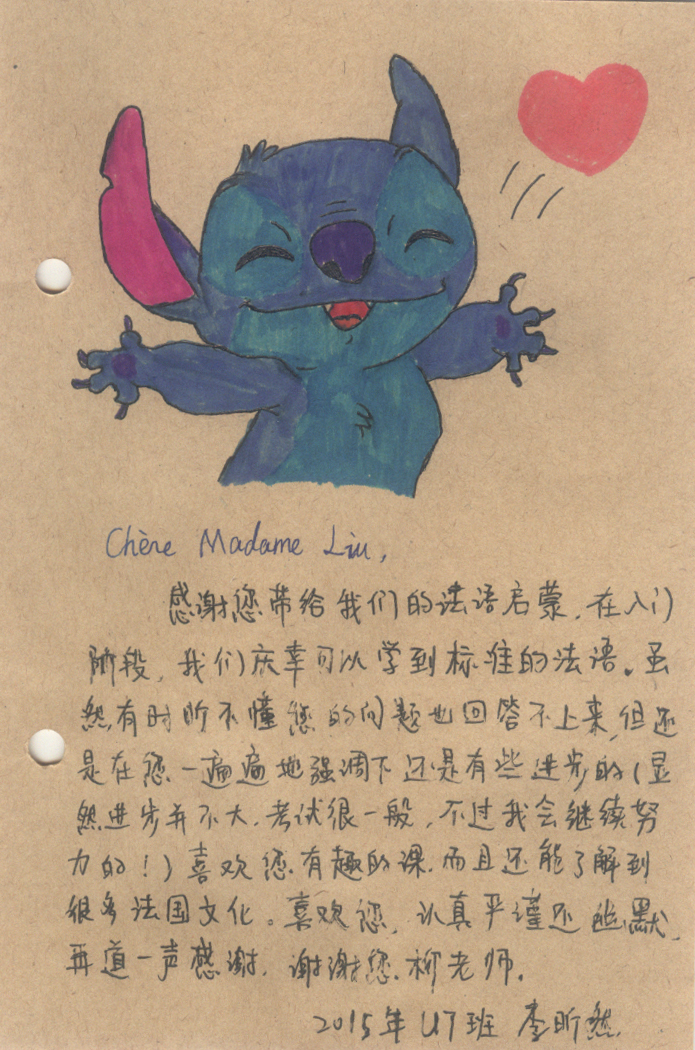 Chère Madame Liu,
感谢您带给我们的法语启蒙，在入门
阶段，我们庆幸可以学到标准的法语。虽
然有时听不懂您的问题也回答不上来，但还
是在您一遍遍地强调下还是有些进步的（显
然进步并不大，考试很一般，不过我会继续努
力的！）喜欢您有趣的课，而且还能了解到
很多法国文化。喜欢您，认真严谨还幽默，
再道一声感谢，谢谢您，柳老师。
2015年 U7班 李昕然